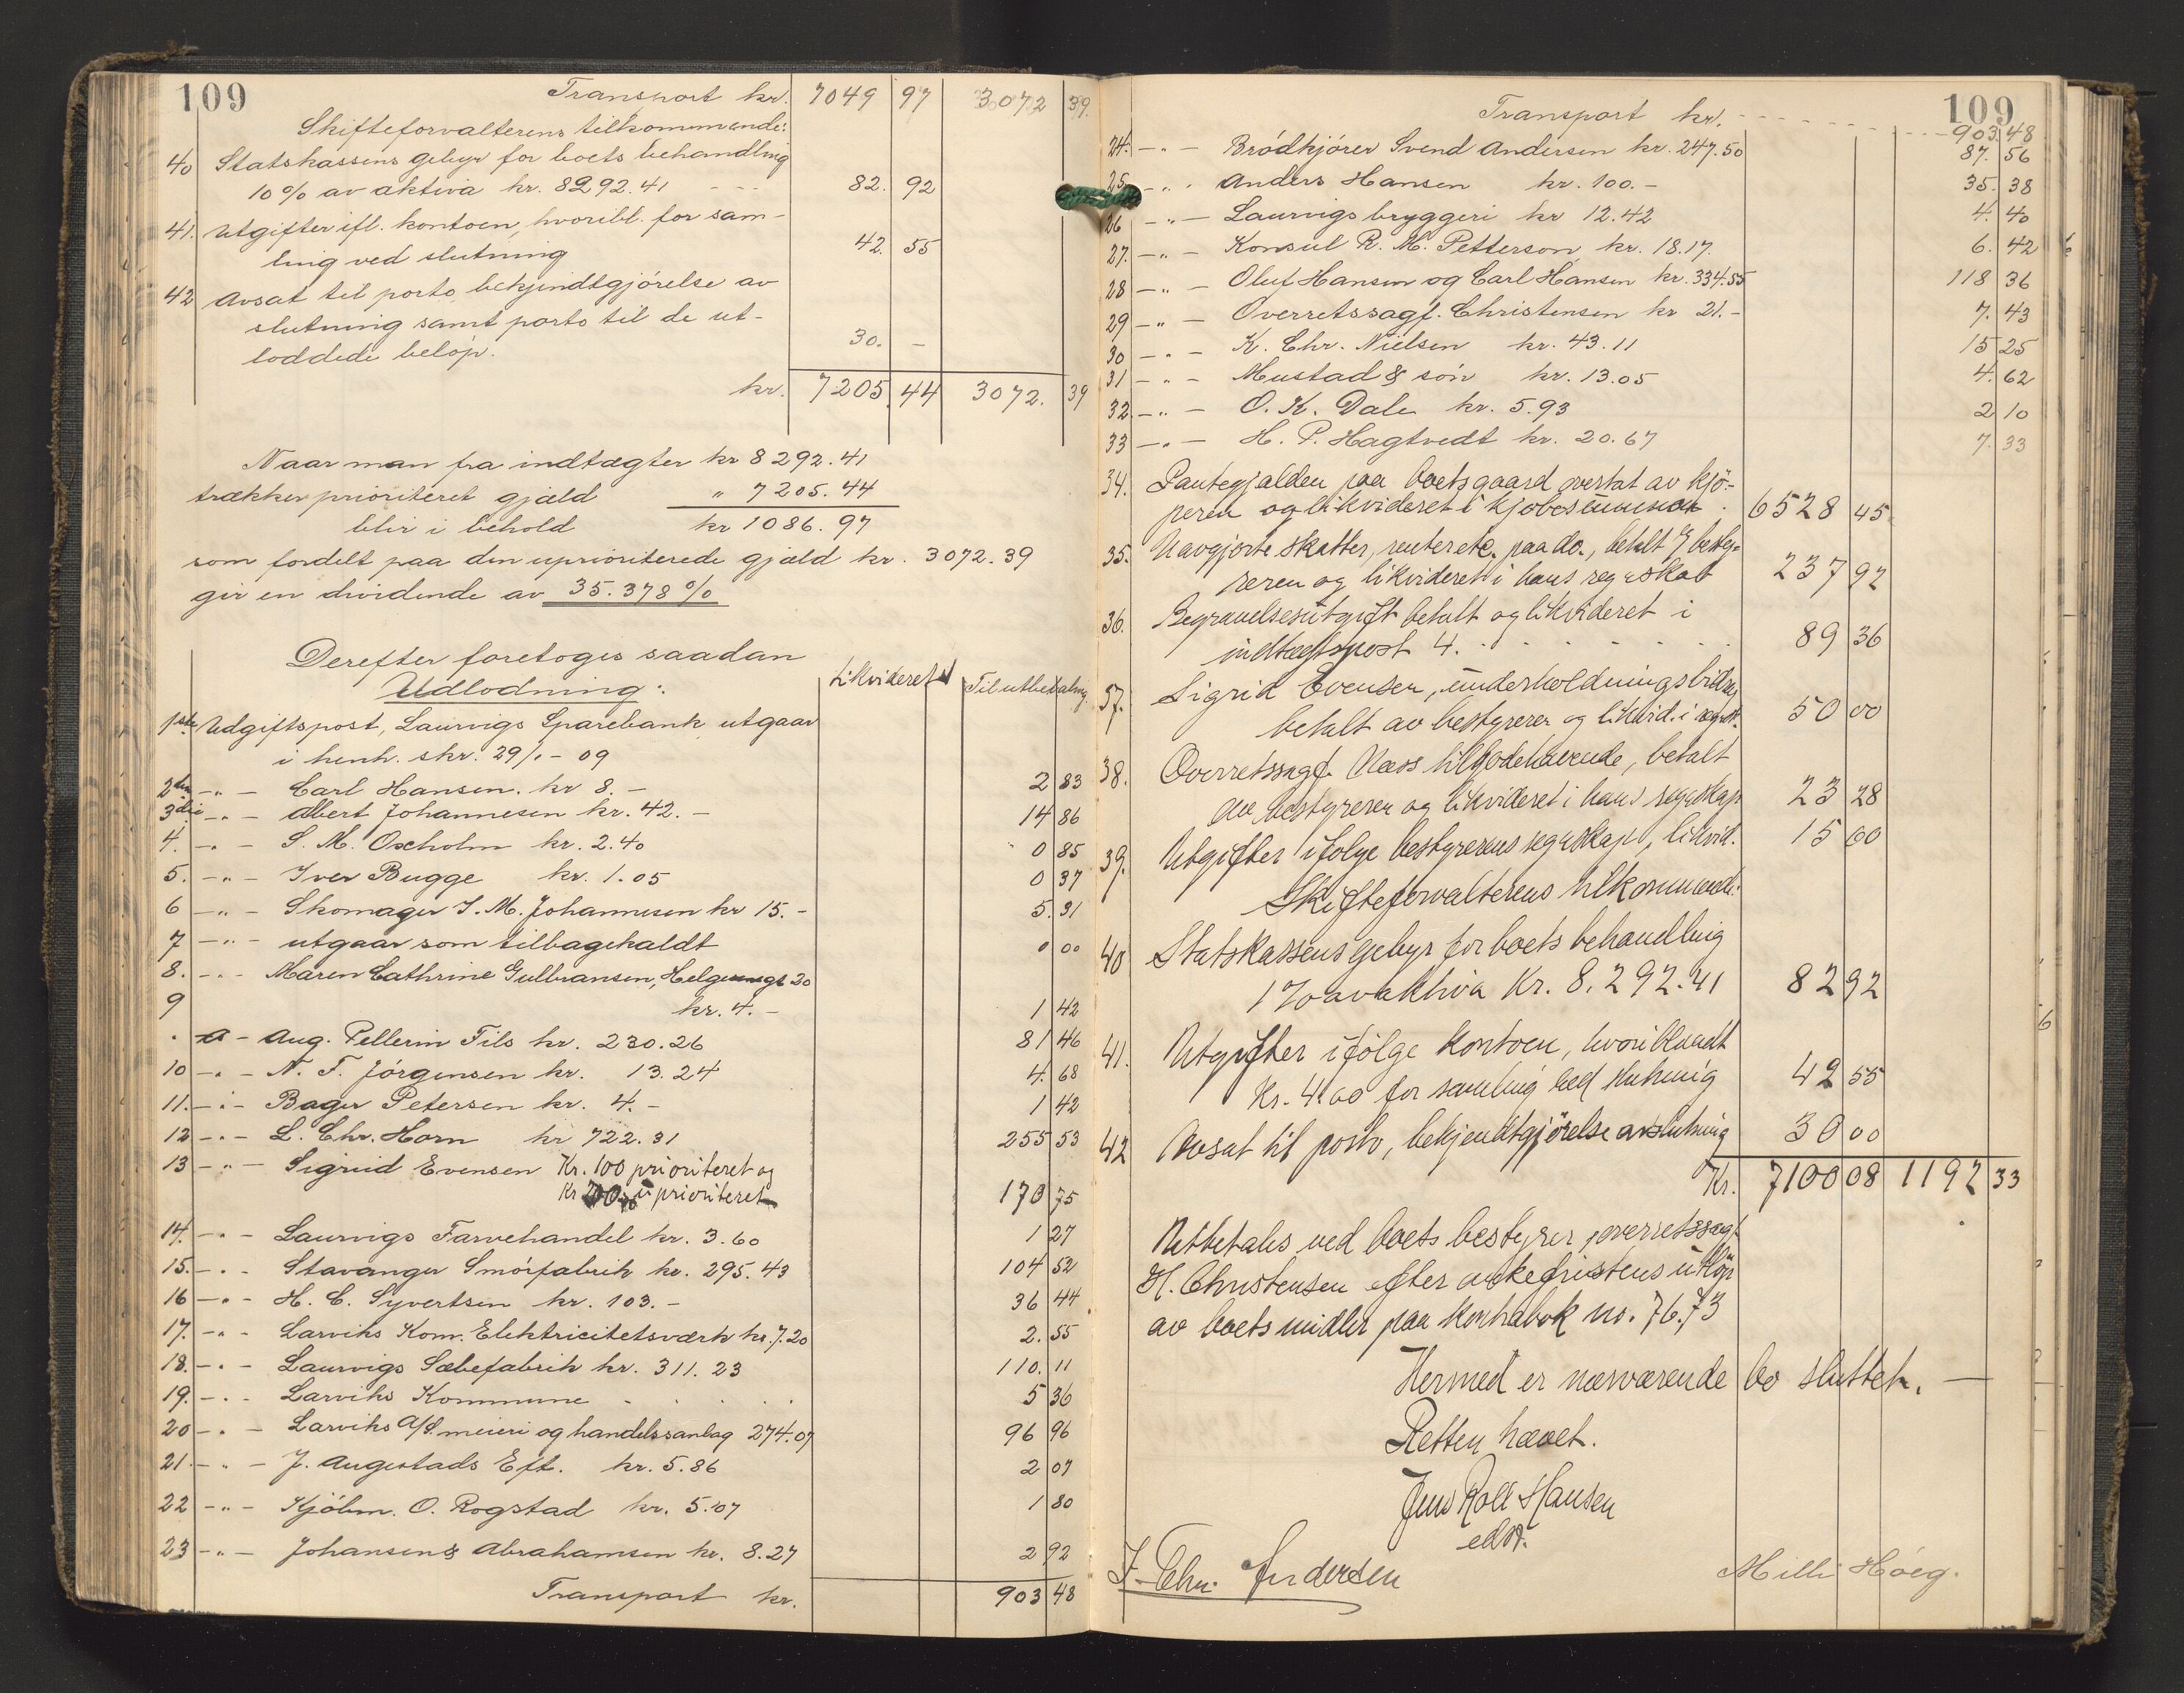 109
Transport kr. 7049 97 3072 39.
Skifteforvalterens tilkommende:
40 Statskassens gebyr for boets behandling
10% av aktiva kr. 8292.41 - - - 82. 92
41. Utgifter ifl. kontoen, hvoribl. for sam-
ling ved slutning 42. 55
42 Avsat til porto, bekjendtgjörelse av
slutning samt porto til de ut-
loddede belöp. 30. -
kr. 7205.44 3072. 39
Naar man fra indtægter kr 8292.41
trækker prioriteret gjæld " 7205.44
blir i behold kr 1086.97
som fordelt paa den uprioriterede gjæld kr. 3072.39
gir en dividende av 35.378 %
Derefter foretoges saadan
Udlodning: Likvideret Til utbetaling.
1ste Udgiftspost, Laurvigs Sparebank utgaar
i henh. skr. 29/1 - 09
2den -"- Carl Hansen. kr 8. - 2 83
3die -"- Albert Johannesen kr. 42. - 14 86
4. -"- S. M. Oxholm kr. 2.40 0 85
5. -"- Iver Bugge kr. 1.05 0 37
6 -"- Skomager I. M. Johannesen kr 15. - 5.31
7 -"- utgaar som tilbagekaldt 0 00
8. -"- Maren Cathrine Gulbransen, Helgeungt 20
9 kr. 4. - 1 42
a - Aug. Pellerin Fils kr. 230.26 81 46
10 -"- N. F. Jörgensen kr. 13.24 4. 68
11. -"- Bager Petersen kr. 4. - 1 42
12 -"- L. Chr. Horn kr 722.31 255 53
13 -"- Sigrid Evensen Kr. 100 prioriteret og
Kr 200 uprioriteret 170 75
14. -"- Laurvigs Farvehandel kr. 3.60 1 27
15. -"- Stavanger Smörfabrik kr. 295.43 104 52
16 -"- H. C. Syvertsen kr. 103. - 36 44
17. -"- Larviks Kom. Elektricitetsværk kr. 7.20 2. 55
18. -"- Laurvigs Sæbefabrik kr. 311.23 110. 11
19. -"- Larviks Kommune . . . . 5 36
20 -"- Larviks A/S. meieri og handelsanlag 274.07 96 96
21. -"- J. Augestads Eft. kr. 5.86 2 07
22 -"- Kjöbm. O. Rogstad kr. 5.07 1 80
23 -"- Johansen & Abrahamsen kr. 8.27 2 92
Transport kr. 903 48
109
Transport kr. - - - - 903 48
24. -"- Brödkjörer Svend Andersen kr. 247.50 87. 56
25. -"- Anders Hansen kr. 100. - 35. 38
26 -"- Laurvigs bryggeri kr 12.42 4. 40
27. -"- Konsul R. M. Petterson, kr. 18.17. 6. 42
28 -"- Oluf Hansen og Carl Hansen kr. 334.55 118 36
29 -"- Overretssagf. Christensen kr 21. - 7. 43
30 -"- K. Chr. Nielsen kr. 43.11 15 25
31 -"- Mustad & sön kr. 13.05 4. 62
32 -"- O. K. Dale kr. 5.93 2 10
33 -"- H. P. Hagtvedt kr. 20.67 7. 33
34. Pantegjælden paa boets gaard overtat av kjö-
peren og likvideret i kjøbesummen . 6528 45
35. Uavgjorte skatter, renter etc. paa do., betalt af besty-
reren og likvideret i hans regnskab 237 92
36. Begravelsesutgift betalt og likvideret i
indtægtspost 4. . . . . . 89 36
37. Sigrid Evensen, underholdningsbidrag
betalt av bestyrerer og likvid. i regnsk. 50 00
38. Overretssagf. Næss tilgodehavende, betalt
av bestyrerer og likvideret i hans regnskap 23 28
39. Utgifter ifølge bestyrerens regnskap, likvid. 15 60
Skifteforvalterens tilkommende:
40 Statskassens gebyr for boets behandling
1% av aktiva Kr. 8.292.41 82 92
41. Utgifter ifölge kontoen, hvoriblandt
Kr. 4.00 for samling ved slutning 42 55
42 Avsat til porto, bekjendtgjörelse av slutning 30 00
Kr. 7100 08 1192 33
Utbetales ved boets bestyrer, overretssagf.
H. Christensen efter ankefristens utlöp
av boets midler paa kontrabok no. 7673
Hermed er nærværende bo sluttet. -
Retten hævet.
Jens Roll Hansen
edsv.
J. Chr. Andersen Milli Höeg.